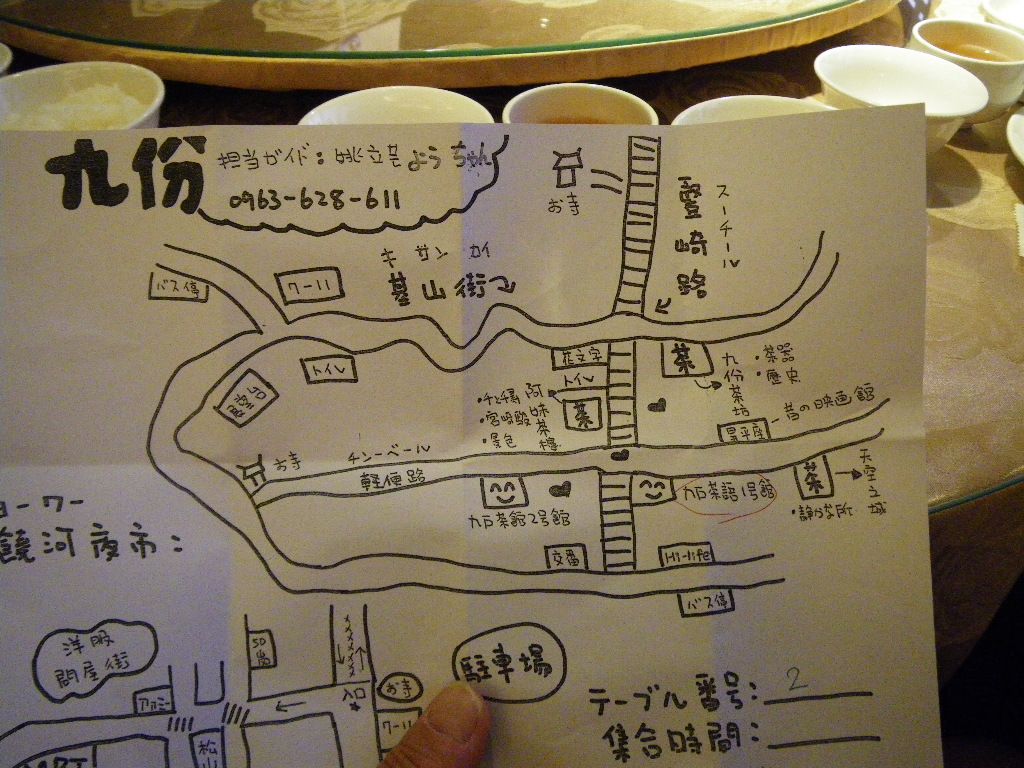 九份
担当ガイド：姚立芸 ようちゃん
0963-628-611
お寺
スーチール
豎崎路
バス停
ワール
キサンカイ
基山街
トイレ
花文字
トイレ
茶
九份茶坊
・茶器
・歴史
・千と千尋
・宮崎駿
・景色
阿妹茶樓
茶
昇平座
昔の映画館
お寺
チンーベール
軽便路
九戸茶館2号館
九戸茶語1号館
茶
天空之城
・静かな所
交番
Hi-life
バス停
ヨーワー
饒河夜市：
洋服
問屋街
ファミー
松山
MRT
50嵐
入口
お寺
駐車場
テーブル番号：2
集合時間：